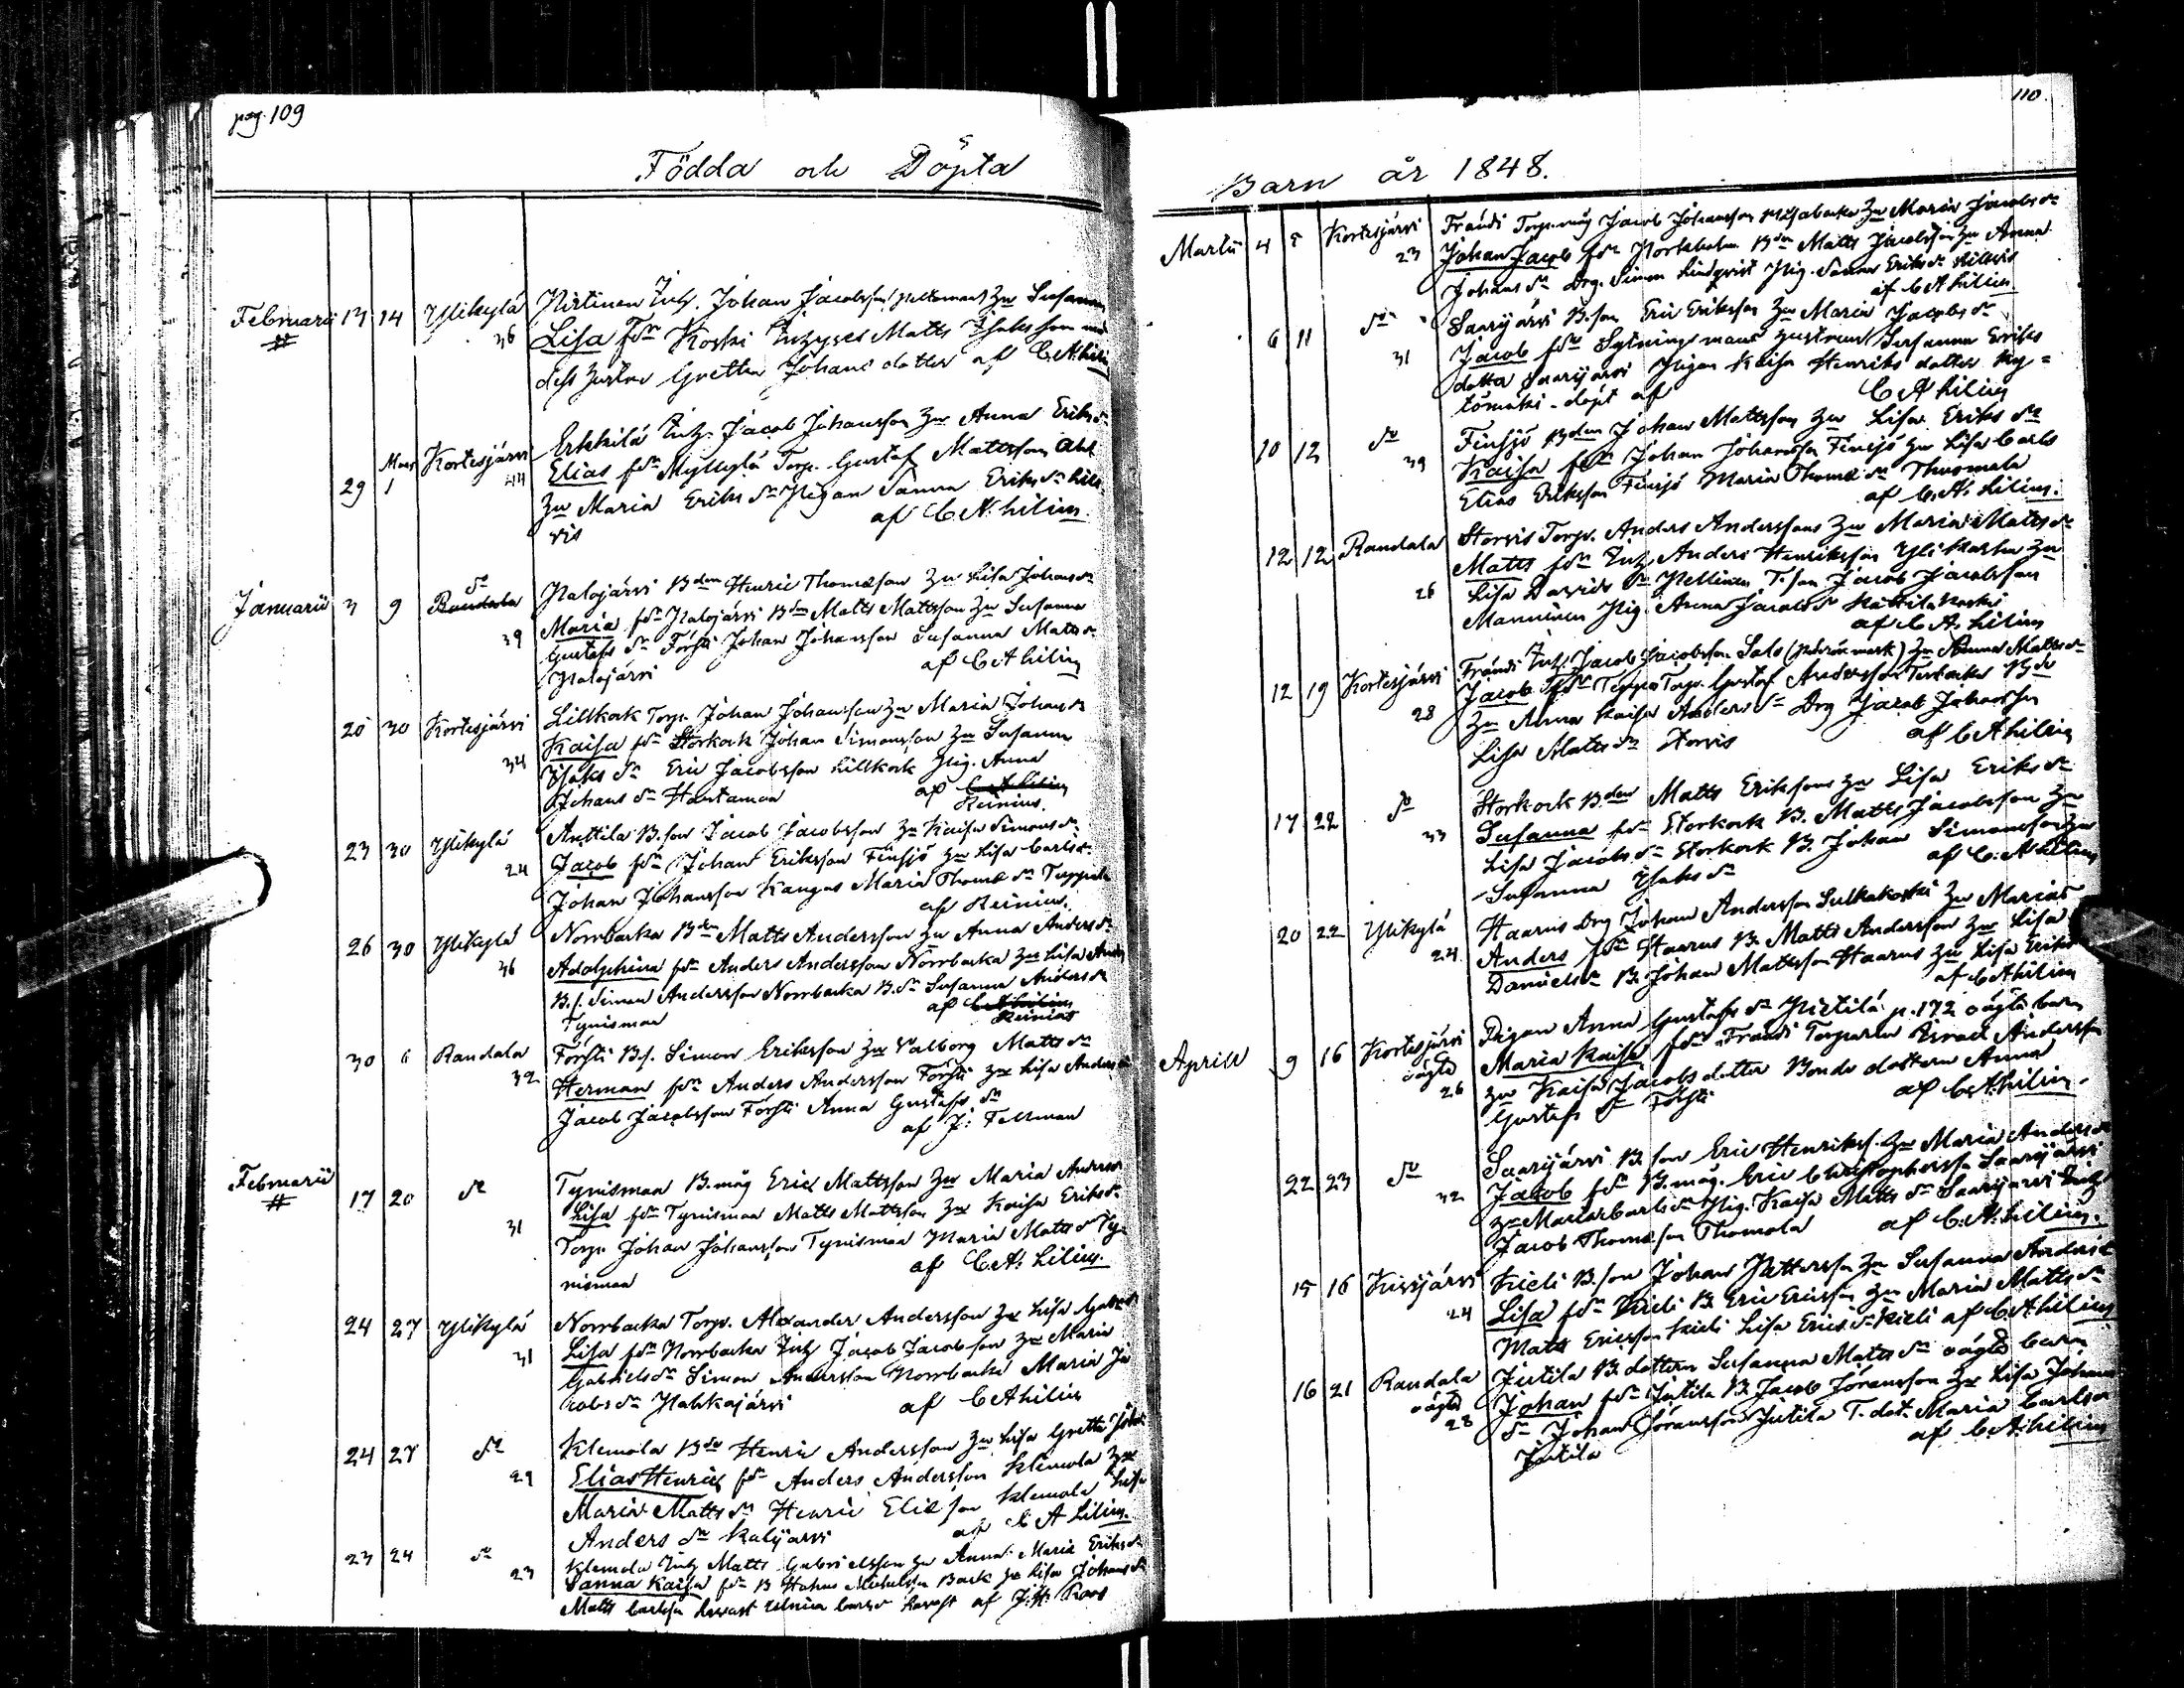 pag. 109
Födda och Döpta
Februarii 13 14 Ylikylä Inh. Johan Jacobsson Hu Susanna
36 Lisa fdr Koski Matts Isaksson
dess hustru Gretha Johans dotter af C A Lilius
29 Mars 1 Kortesjärvi Erkkilä Inh. Jacob Johansson Hu Anna Eriks dr
44 Elias fdr Myllylä Torp. Gustaf Mattsson
Hu Maria Eriks dr Pigan Sanna Eriks dr
af C A Lilius
Januarii 3 9 do Randala Palojärvi Bden Henric Thomæson Hu Lisa Johans dr
39 Maria fdr Palojärvi Bdn Matts Mattsson Hu Susanna
Gustafs dr Försti Johan Johansson Susanna Matts dr
Palojärvi af C A Lilius
20 30 Kortesjärvi Lillkock Torp. Johan Johansson Hu Maria Johans dr
34 Kaisa fdr Storkock Johan Simonsson Hu Susanna
Isaks dr Eric Jacobsson Lillkock Pig. Anna
Johans dr af C A Lilius
Reinius.
23 30 Ylikylä Anttila B.son Jacob Jacobsson Hu Kaisa Simons dr
24 Jacob fdr Johan Eriksson Finsjö Hu Lisa Carls dr
Johan Johansson Kangas Maria Thomæ dr
af Reinius.
26 30 Ylikylä Norrbacka Bdn Matts Andersson Hu Anna Anders dr
36 Adolphina fdr Anders Andersson Norrbacka Hu Lisa
B.s. Simon Andersson Norrbacka B.dr Susanna Anders dr
Tynismaa af C A Lilius
Reinius
30 6 Randala Försti B.s. Simon Eriksson Hu Valborg Matts dr
32 Herman fdr Anders Andersson Försti Hu Lisa Anders dr
Jacob Jacobsson Försti Anna Gustafs dr
af J. Fellman
Februarii 17 20 do Tynismaa B.måg Eric Mattsson Hu Maria Anders dr
31 Lisa fdr Tynismaa Matts Mattsson Hu Kaisa Eriks dr
Torp. Johan Johansson Tynismaa Maria Matts dr Ty-
nismaa af C A. Lilius.
24 27 Ylikylä Norrbacka Torp. Alexander Andersson Hu Lisa
31 Lisa fdr Norrbacka Inh Jacob Jacobsson Hu Maria
Gabriels dr Simon Andersson Norrbacka Maria Ja
cobs dr Pahkajärvi af C A Lilius
24 27 do Klemola Bdr Henric Andersson Hu Lisa Gretha
29 Elias Henric fdr Anders Andersson Klemola Hu
Maria Matts dr Henric Eliæson Klemola Lisa
Anders dr af C A Lilius.
23 24 do Klemola Inh Matts Gabrielsson Hu Anna Maria Eriks dr
23 Sanna Kaisa fdr B Back Hu Lisa Johans dr
Matts Carlsson af J.H. Roos
110
Barn år 1848.
Martii 4 5 Kortesjärvi Frändi Torp.måg Jacob Johansson Hu Maria Jacobs dr
23 Johan Jacob fdr Bdn Matts Jacobsson Hu Anna
Johans dr Drg. Simon Lindqvist Pig. Sanna Eriks dr
af C A Lilius
6 11 do Saarijärvi B.son Eric Eriksson Hu Maria Jacobs dr
31 Jacob fdr Sytnings mans hustrun Susanna Eriks
dotter Saarijärvi Pigan Kaisa Henriks dotter
döpt af C A Lilius
10 12 do Finsjö Bden Johan Mattsson Hu Lisa Eriks dr
39 Kaisa fdr Johan Johansson Finsjö Hu Lisa Carls
Elias Eriksson Finsjö Maria Thomæ dr Thuomala
af C. A. Lilius.
12 12 Randala Storvis Torp. Anders Anderssons Hu Maria Matts dr
26 Matts fdr Inh Anders Henriksson Hu
Lisa Davids dr T.son Jacob Jacobsson
Manninen Pig. Anna Jacobs dr
af C A. Lilius
12 19 Kortesjärvi Frändi Inh. Jacob Jacobsson Salo Hu Anna Matts dr
28 Jacob fdr Teppo Torp. Gustaf Andersson
Hu Anna Kaisa Anders dr Drg Jacob Johansson
Lisa Matts dr Storvis af C A Lilius
17 22 do Storkock Bden Matts Erikssons Hu Lisa Eriks dr
33 Susanna fdr Storkock B. Matts Jacobsson Hu
Lisa Jacobs dr Storkock B. Johan Simonsson Hu
Susanna Isaks dr af C. A Lilius
20 22 Ylikylä Haarus Drg Johan Andersson Sulkakoski Hu Maria
24 Anders fdr Haarus B. Matts Andersson Hu Lisa
Daniels dr B. Johan Mattsson Haarus Hu Lisa Eriks
af C A Lilius
Aprill 9 16 Kortesjärvi Pigan Anna Gustafs dr Pietilä p.172 oägta barn
oägta 26 Maria Kaisa fdr Frändi Torparen Israel Andersson
Hu Kaisa Jacobs dotter Bonde dottern Anna
Gustafs dr Försti af C A. Lilius.
22 23 do Saarijärvi B.son Eric Henrikss. Hu Maria Anders dr
32 Jacob fdr B.måg. Eric Christophersson Saarijärvi
Hu Maria Carls dr Pig. Kaisa Matts dr Saarijärvi
Jacob Thomæson Thomola af C. A. Lilius.
15 16 Kieli B.son Johan Pettersson Hu Susanna Anders dr
24 Lisa fdr Kieli B. Eric Ericsson Hu Maria Matts dr
Matts Ericsson Kieli Lisa Erics dr Kieli af C A Lilius
16 21 Randala Jutila B. dottern Susanna Matts dr oägta barn
oägta 23 Johan fdr Jutila B. Jacob Göransson Hu Lisa Johans
dr Johan Göransson Jutila T. dot. Maria Carls dr
Jutila af C. A. Lilius